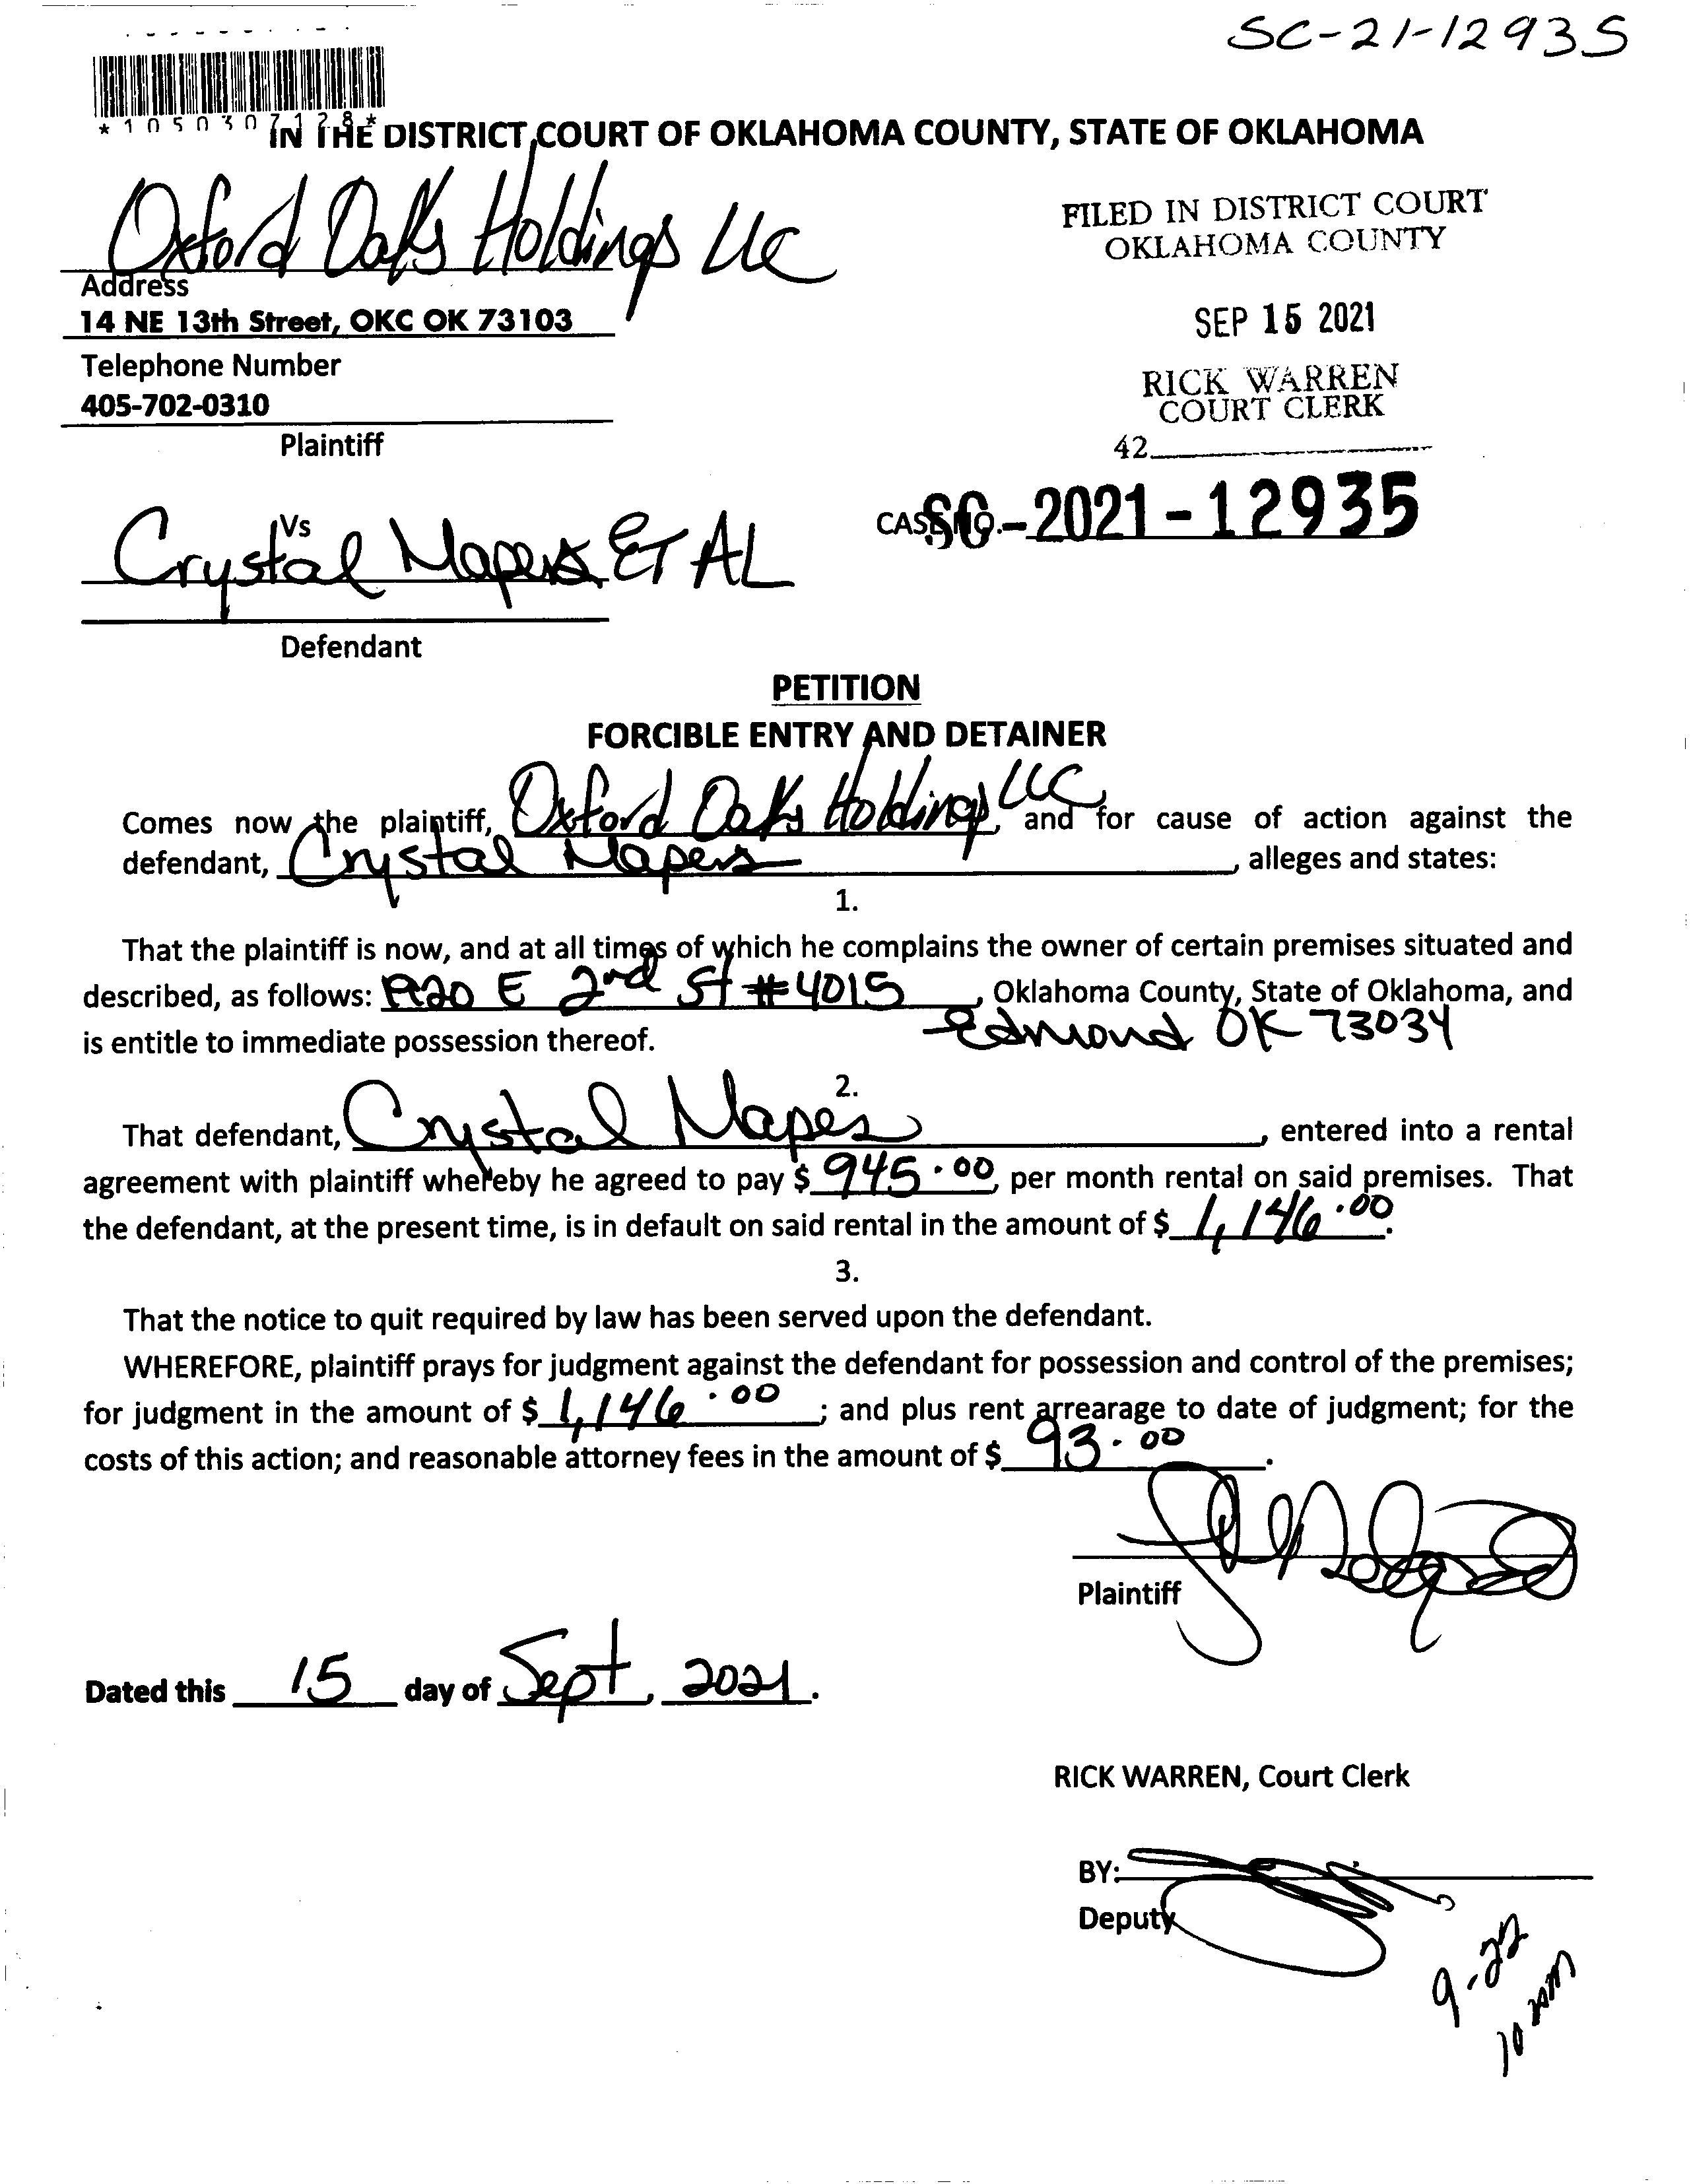 SC-21-12935
*1050307128*
IN THE DISTRICT COURT OF OKLAHOMA COUNTY, STATE OF OKLAHOMA
Oxford Oaks Holdings LLC
Address
14 NE 13th Street, OKC OK 73103
Telephone Number
405-702-0310
Plaintiff
FILED IN DISTRICT COURT
OKLAHOMA COUNTY
SEP 15 2021
RICK WARREN
COURT CLERK
42
CASE NO. SC-2021-12935
Vs
Crystal Mapes ET AL
Defendant
PETITION
FORCIBLE ENTRY AND DETAINER
Comes now the plaintiff, Oxford Oaks Holdings LLC, and for cause of action against the
defendant, Crystal Mapes, alleges and states:
1.
That the plaintiff is now, and at all times of which he complains the owner of certain premises situated and
described, as follows: E 2nd St #4015, Oklahoma County, State of Oklahoma, and
Edmond OK 73034
is entitle to immediate possession thereof.
2.
That defendant, Crystal Mapes, entered into a rental
agreement with plaintiff whereby he agreed to pay $ 945.00, per month rental on said premises. That
the defendant, at the present time, is in default on said rental in the amount of $ 1,146.00.
3.
That the notice to quit required by law has been served upon the defendant.
WHEREFORE, plaintiff prays for judgment against the defendant for possession and control of the premises;
for judgment in the amount of $ 1,146.00; and plus rent arrearage to date of judgment; for the
costs of this action; and reasonable attorney fees in the amount of $ 93.00.
Plaintiff
Dated this 15 day of Sept, 2021.
RICK WARREN, Court Clerk
BY:
Deputy
9-22
10 am